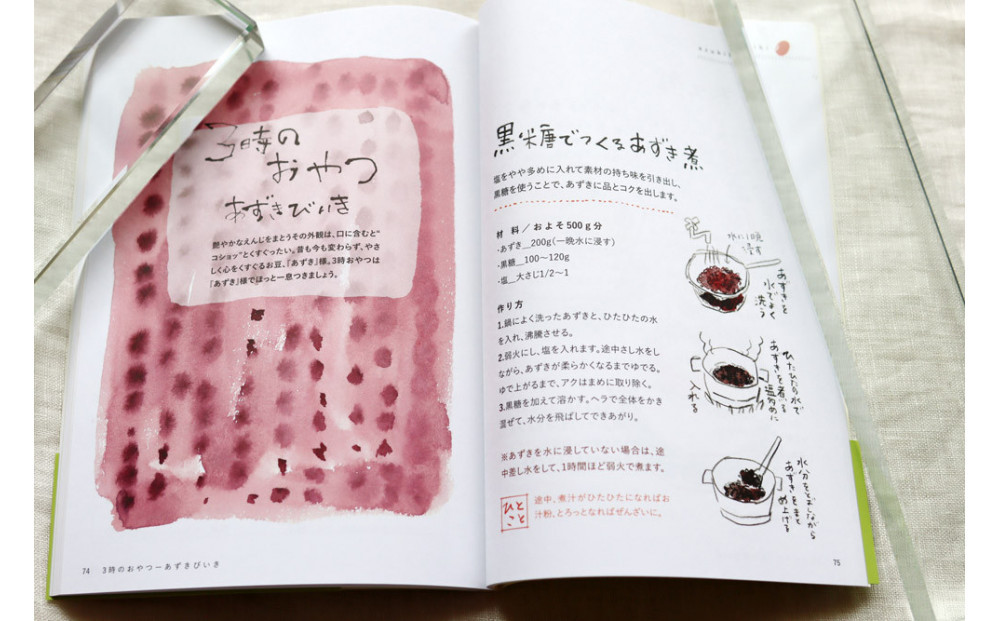 3時の
おやつ
あずきびいき
艶やかなえんじをまとうその外観は、口に含むと“
コショッ”とくすぐったい。昔も今も変わらず、やさ
しく心をくすぐるお豆、『あずき』様。3時おやつは
『あずき』様でほっと一息つきましょう。
74 3時のおやつーあずきびいき
黒糖でつくるあずき煮
塩をやや多めに入れて素材の持ち味を引き出し、
黒糖を使うことで、あずきに品とコクを出します。
材 料／およそ500g分
・あずき__200g(一晩水に浸す)
・黒糖__100〜120g
・塩__大さじ1/2〜1
作り方
1.鍋によく洗ったあずきと、ひたひたの水
を入れ、沸騰させる。
2.弱火にし、塩を入れます。途中さし水をし
ながら、あずきが柔らかくなるまでゆでる。
ゆで上がるまで、アクはまめに取り除く。
3.黒糖を加えて溶かす。ヘラで全体をかき
混ぜて、水分を飛ばしてできあがり。
※あずきを水に浸していない場合は、途
中差し水をして、1時間ほど弱火で煮ます。
ひと
こと
途中、煮汁がひたひたになればお
汁粉、とろっとなればぜんざいに。
水に1晩
浸す
あずきを
水でよく
洗う
ひたひたの水で
あずきを煮る
塩多めに
入れる
水分をとばしながら
あずきをまと
め上げる
75